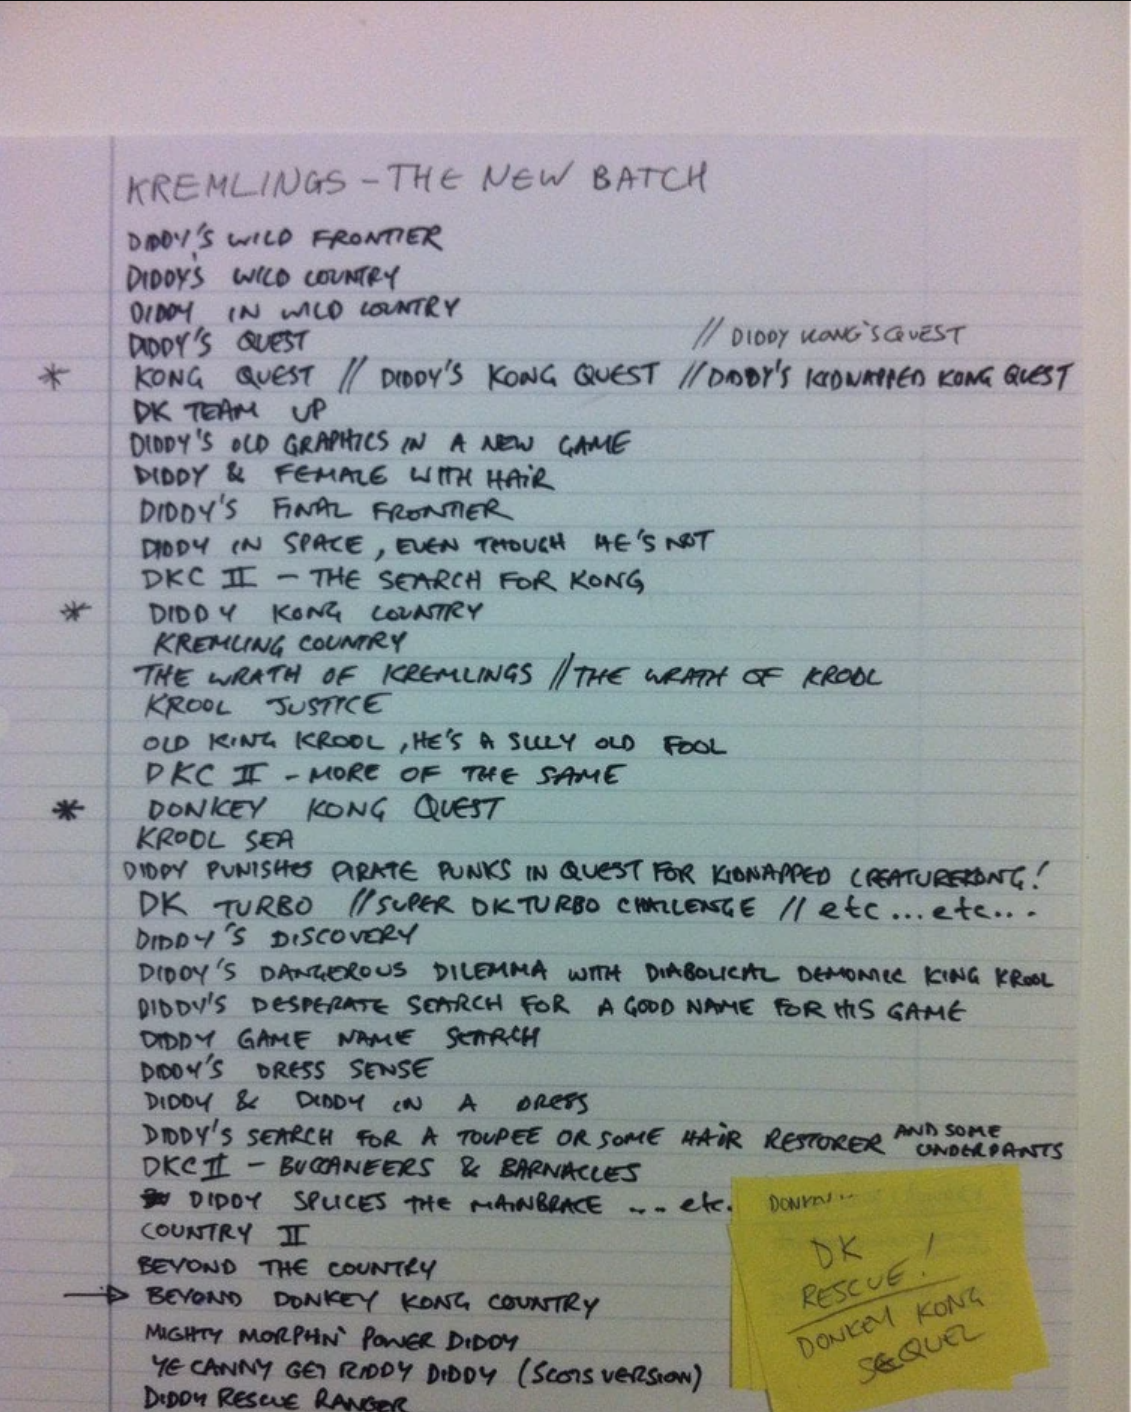 KREMLINGS - THE NEW BATCH
DIDDY'S WILD FRONTIER
DIDDY'S WILD COUNTRY
DIDDY IN WILD COUNTRY
DIDDY'S QUEST // DIDDY KONG'S QUEST
* KONG QUEST // DIDDY'S KONG QUEST // DIDDY'S KIDNAPPED KONG QUEST
DK TEAM UP
DIDDY'S OLD GRAPHICS IN A NEW GAME
DIDDY & FEMALE WITH HAIR
DIDDY'S FINAL FRONTIER
DIDDY IN SPACE, EVEN THOUGH HE'S NOT
DKC II - THE SEARCH FOR KONG
* DIDDY KONG COUNTRY
KREMLING COUNTRY
THE WRATH OF KREMLINGS // THE WRATH OF KROOL
KROOL JUSTICE
OLD KING KROOL, HE'S A SILLY OLD FOOL
DKC II - MORE OF THE SAME
* DONKEY KONG QUEST
KROOL SEA
DIDDY PUNISHES PIRATE PUNKS IN QUEST FOR KIDNAPPED CREATUREKONG!
DK TURBO // SUPER DK TURBO CHALLENGE // etc ... etc...
DIDDY'S DISCOVERY
DIDDY'S DANGEROUS DILEMMA WITH DIABOLICAL DEMONIC KING KROOL
DIDDY'S DESPERATE SEARCH FOR A GOOD NAME FOR HIS GAME
DIDDY GAME NAME SEARCH
DIDDY'S DRESS SENSE
DIDDY & DIDDY IN A DRESS
DIDDY'S SEARCH FOR A TOUPEE OR SOME HAIR RESTORER AND SOME UNDERPANTS
DKC II - BUCCANEERS & BARNACLES
DIDDY SPLICES THE MAINBRACE ... etc.
COUNTRY II
BEYOND THE COUNTRY
→ BEYOND DONKEY KONG COUNTRY
MIGHTY MORPHN' POWER DIDDY
YE CANNY GET RIDDY DIDDY (SCOTS VERSION)
DIDDY RESCUE RANGER
DONKEY...
DK
RESCUE!
DONKEY KONG
SEQUEL